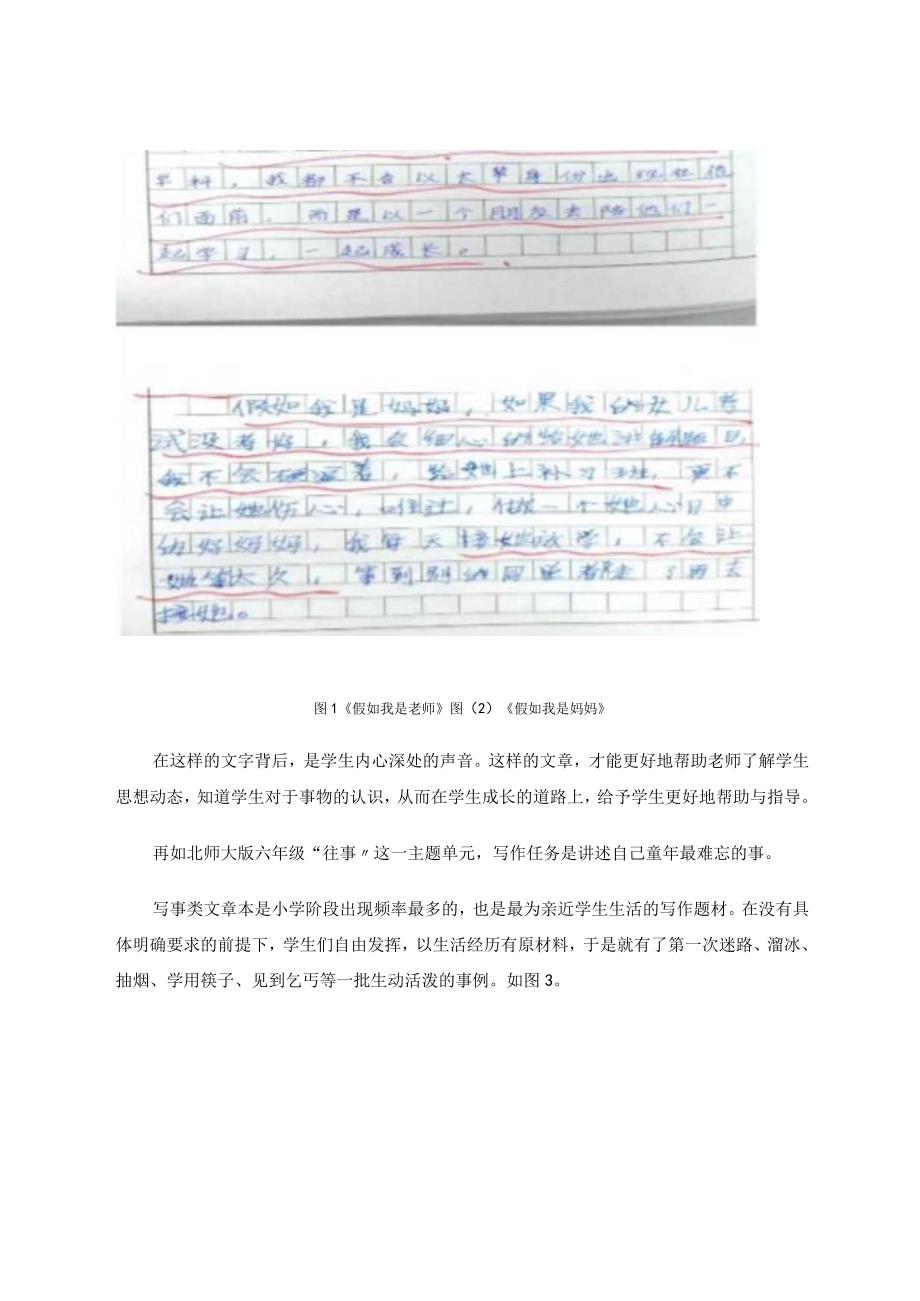 科，我都不会以大　身份出现在他
们面前，而是以一个朋友去陪他们一
起学习，一起成长。
假如我是妈妈，如果我的女儿考
试没考好，我会细心的给她讲解题目，
我不会　着，给她上补习班，更不
会让她伤心，难过，做一个她心目中
的好妈妈，我每天接她放学，不会让
她等太久，等到别的同学都走了再去
接她。
图1《假如我是老师》图（2）《假如我是妈妈》
在这样的文字背后，是学生内心深处的声音。这样的文章，才能更好地帮助老师了解学生
思想动态，知道学生对于事物的认识，从而在学生成长的道路上，给予学生更好地帮助与指导。
再如北师大版六年级“往事〃这一主题单元，写作任务是讲述自己童年最难忘的事。
写事类文章本是小学阶段出现频率最多的，也是最为亲近学生生活的写作题材。在没有具
体明确要求的前提下，学生们自由发挥，以生活经历有原材料，于是就有了第一次迷路、溜冰、
抽烟、学用筷子、见到乞丐等一批生动活泼的事例。如图3。